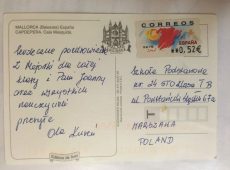 MALLORCA (Baleares) España
CAPDEPERA. Cala Mesquida.
CORREOS
ESPAÑA
0,52€
Serdeczne pozdrowienia
z Majorki dla całej
klasy i Pani Joanny
oraz wszystkich
nauczycieli
przesyła
Ola
Szkoła Podstawowa
nr 24 
ul. Powstańców 67a
WARSZAWA
POLAND